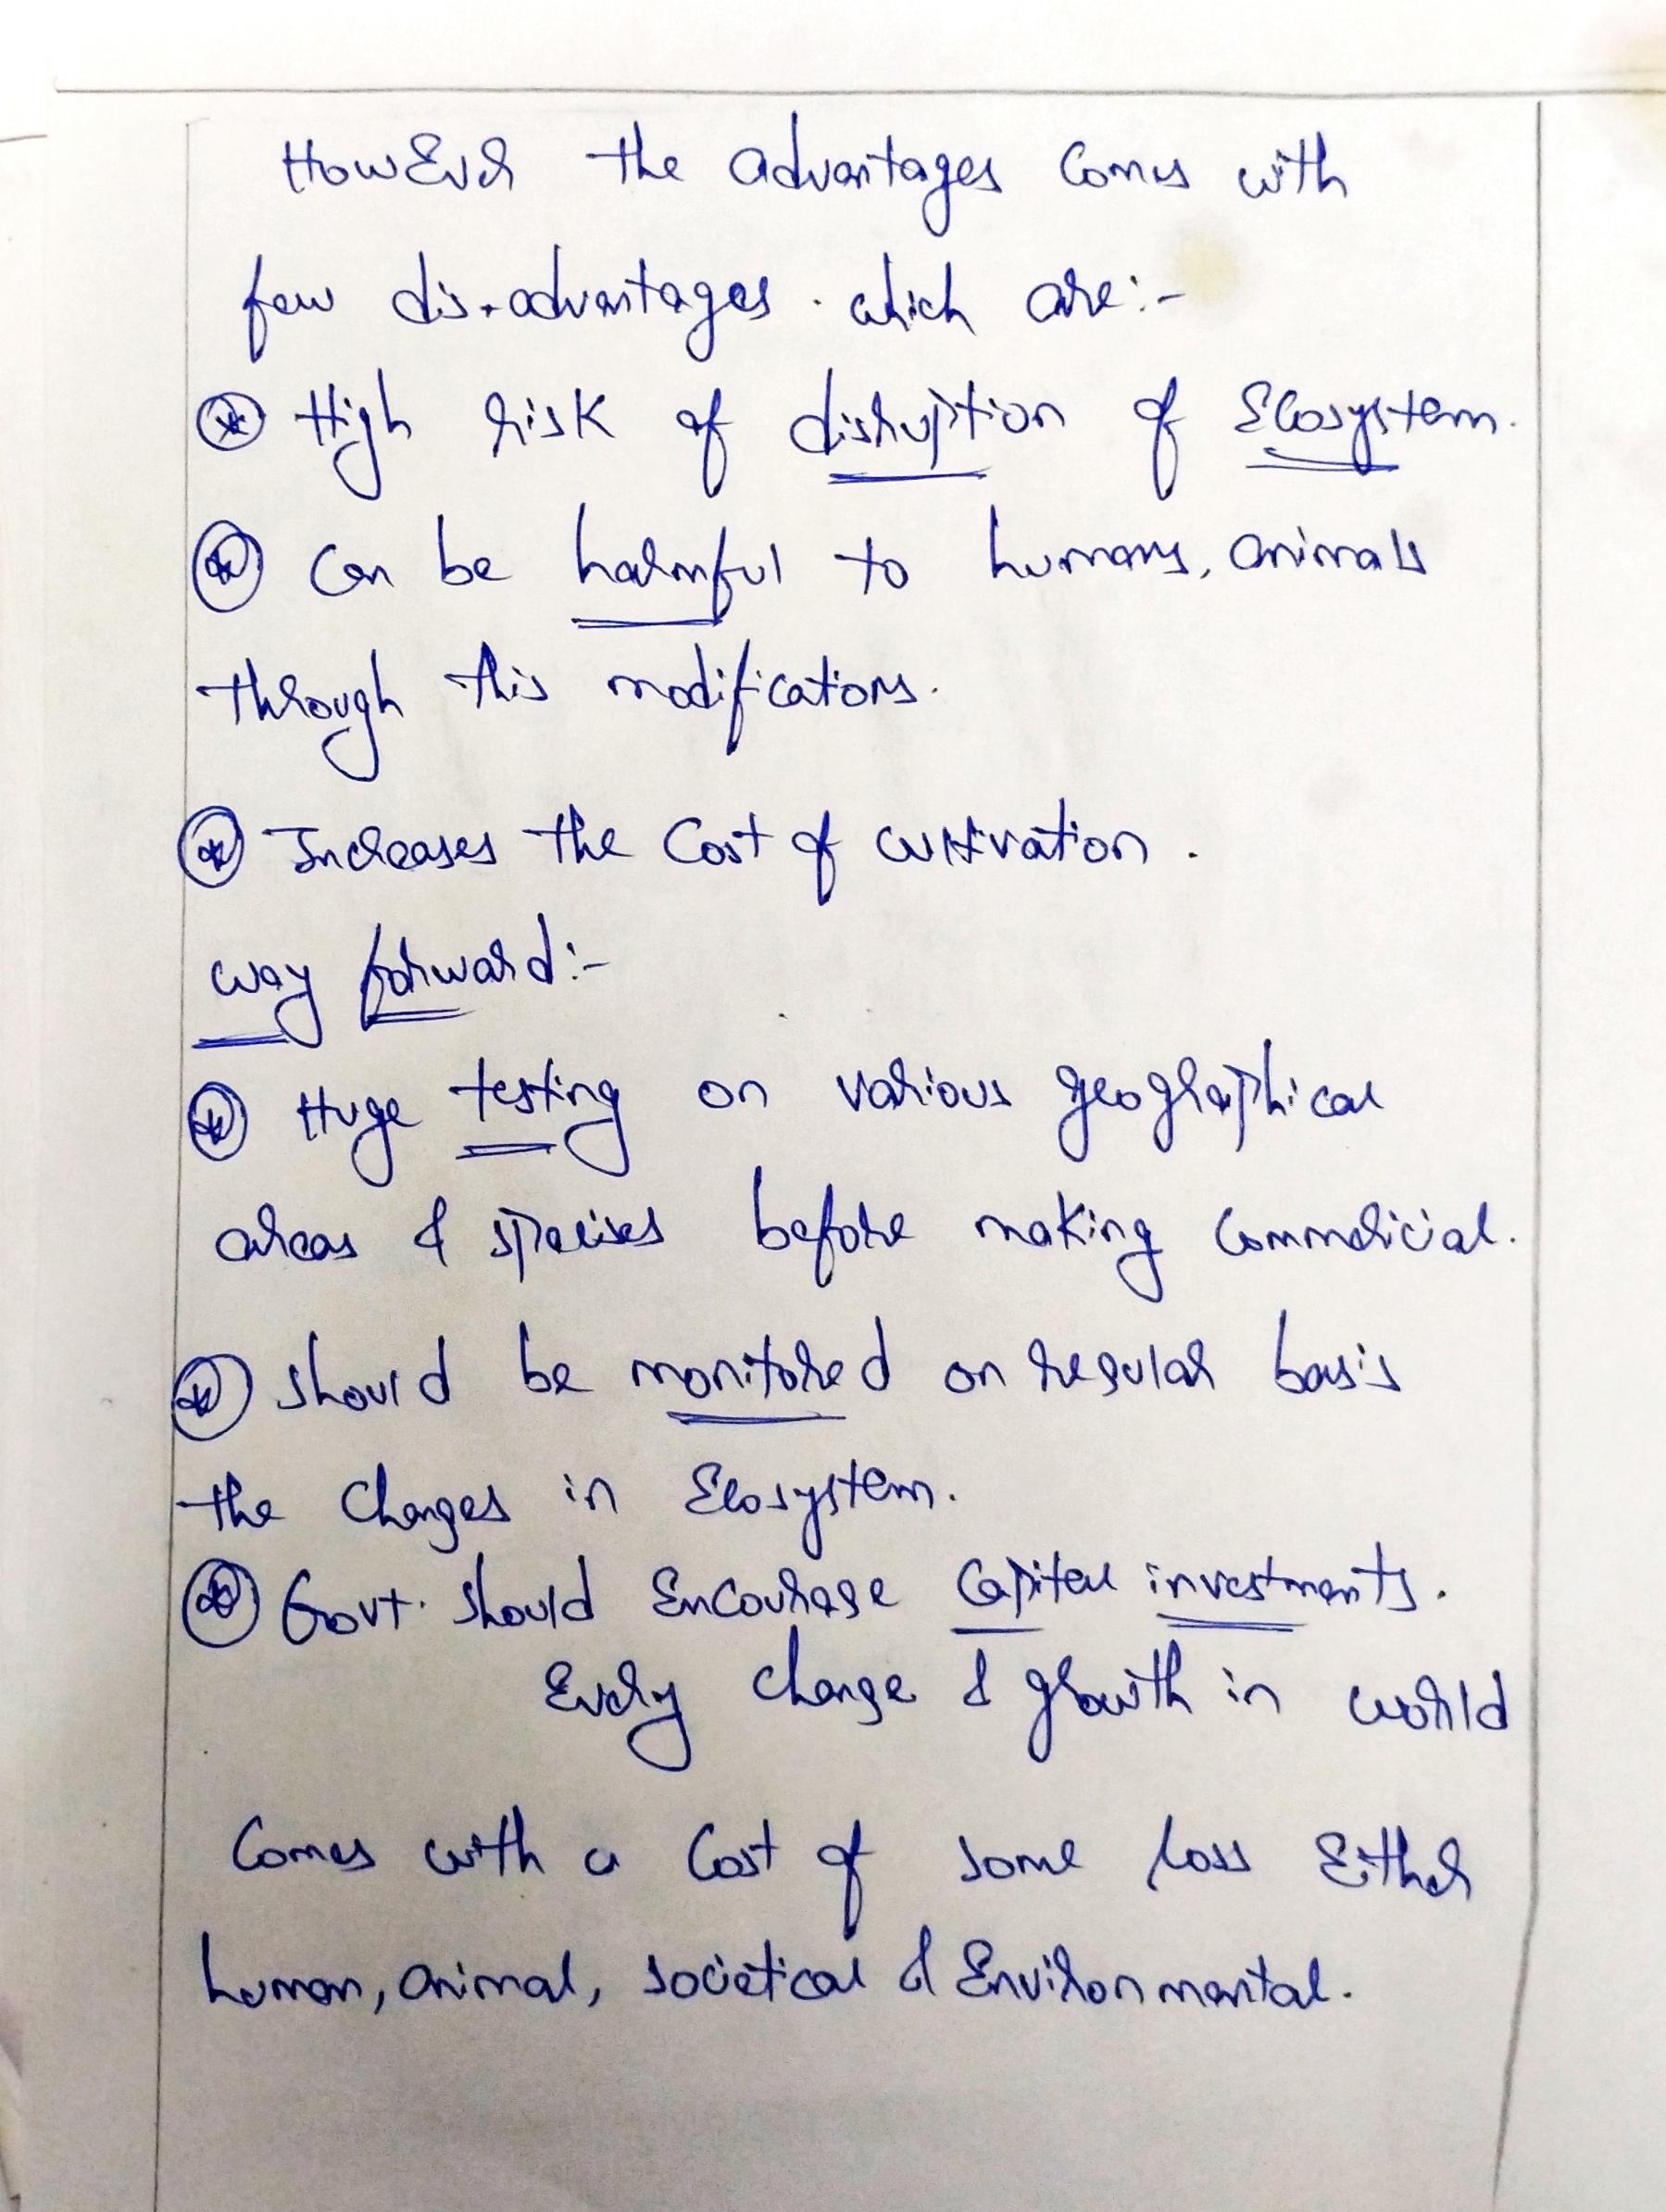 However the advantages comes with
few dis-advantages. which are:-
⊛ High risk of disruption of Ecosystem.
⊛ Can be harmful to humans, animals
through this modifications.
⊛ Increases the cost of cultivation.
way forward:-
⊛ Huge testing on various geographical
areas & speises before making Commercial.
⊛ should be monitored on regular basis
the changes in Ecosystem.
⊛ Govt. should Encourage Capital investments.
Every change & growth in world
Comes with a Cost of some loss Either
human, animal, societical & Environmental.